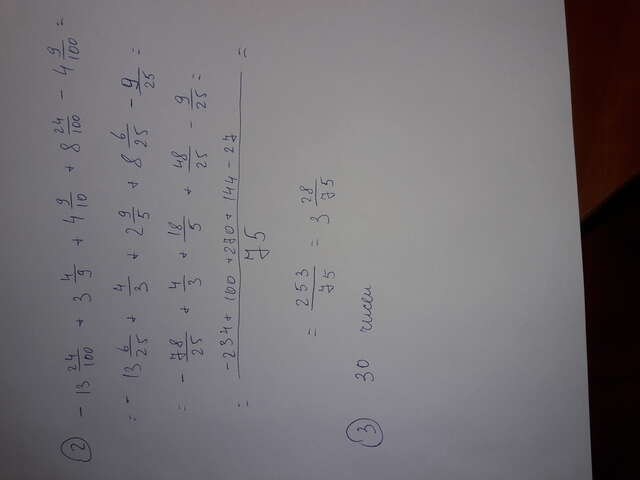 ② - 13 24/100 + 3 4/9 + 4 9/10 + 8 24/100 - 4 9/100 =
= - 13 6/25 + 4/3 + 2 9/5 + 8 6/25 - 9/25 =
= - 78/25 + 4/3 + 18/5 + 48/25 - 9/25 =
= (-234 + 100 + 270 + 144 - 27)/75 =
= 253/75 = 3 28/75
③ 30 чисел